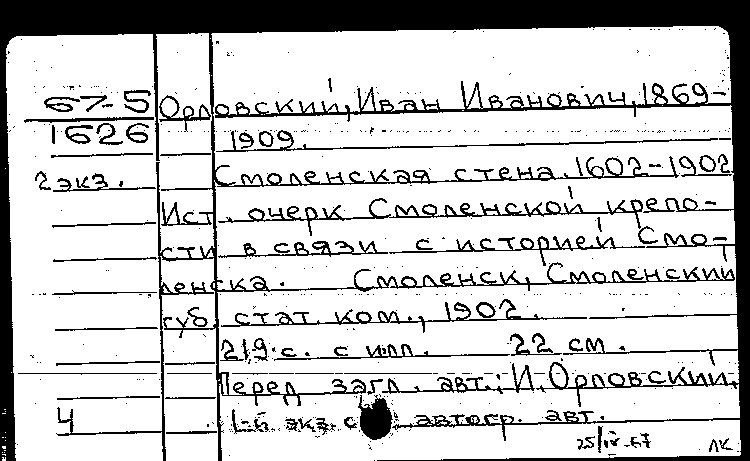 67-5 Орловский, Иван Иванович, 1869-
1626 1909.
2 экз. Смоленская стена. 1602-1902
Ист. очерк Смоленской крепо-
сти в связи с историей Смо-
ленска. Смоленск, Смоленский
губ. стат. ком., 1902.
219 с. с илл. 22 см.
Перед загл. авт.: И. Орловский.
Ч 1-й экз. с автогр. авт.
25/IV-67 ЛК